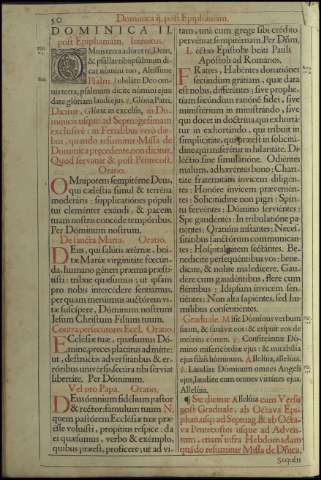 50
Dominica ij. post Epiphaniam.
DOMINICA II.
post Epiphaniam. Introitus.
OMnis terra adoret te, Deus,
& psallat tibi: psalmum di-
cat nomini tuo, Altissime.
Psalm. Iubilate Deo om-
nis terra, psalmum dicite nomini ejus:
date gloriam laudi ejus. ℣. Gloria Patri.
Dicitur, Glória in excelsis, in Do-
exclusivè: in Ferialibus verò die-
bus, quando resumitur Missa de
Dominica præcedente, non dicitur.
Quod servatur & post Pentecost.
Oratio.
OMnipotens sempiterne Deus,
qui cælestia simul & terréna
moderáris: supplicationes pópuli
tui cleménter exáudi, & pacem
tuam nostris concede temporibus.
Per Dóminum nostrum.
De sancta Maria. Oratio.
DEus, qui salútis ætérnæ, beá-
tæ Maríæ virginitáte fœcun-
da, humano géneri præmia præsti-
tísti: tribue quæsumus; ut ipsam
pro nobis intercédere sentiámus,
per quam merúimus auctórem vi-
tæ suscípere, Dóminum nostrum
Jesum Christum Fílium tuum.
Contra persecutores Eccl. Oratio.
ECclésiæ tuæ, quæsumus Dó-
mine, preces placátus admítte:
ut, destrúctis adversitátibus & er-
róribus univérsis, secúra tibi sérviat
libertáte. Per Dóminum.
Vel pro Papa. Oratio.
DEus ómnium fidélium pastor
& rector: fámulum tuum N.
quem pastórem Ecclésiæ tuæ præ-
ésse voluísti, propítius réspice: da
ei quæsumus, verbo & exémplo,
quibus præest, profícere; ut ad vi-
tam, unà cum grege sibi crédito
pervéniat sempitérnam. Per Dñm.
Léctio Epistolæ beáti Pauli
Apóstoli ad Romanos.
FRatres, Habéntes donatiónes
secúndum grátiam, quæ data
est nobis, differéntes: sive prophe-
tíam secúndum ratiónem fidei, sive
ministérium in ministrándo, sive
qui docet in doctrína, qui exhortá-
tur in exhortándo, qui tríbuit in
simplicitáte, qui præest in sollicitú-
dine, qui miserétur in hilaritáte. Di-
léctio sine simulatióne. Odiéntes
malum, adhæréntes bono: Chari-
táte fraternitátis ínvicem diligén-
tes: Honóre ínvicem prævenién-
tes: Sollicitúdine non pigri: Spíri-
tu fervéntes: Dómino serviéntes:
Spe gaudéntes: In tribulatióne pa-
tiéntes: Oratióni instántes: Neces-
sitátibus sanctórum communicán-
tes: Hospitalitátem sectántes. Be-
nedícite persequéntibus vos: bene-
dícite, & nolíte maledícere. Gau-
dére cum gaudéntibus, flére cum
fléntibus: Idípsum ínvicem sen-
tiéntes: Non alta sapiéntes, sed hu-
mílibus consentiéntes.
Graduale. Misit Dóminus verbum
suum, & sanávit eos: & erípuit eos de
intéritu eórum. ℣. Confiteántur Dó-
mino misericórdiæ ejus: & mirabília
ejus fíliis hóminum. Allelúia, allelúia.
℣. Laudáte Dóminum omnes Angeli
ejus, laudáte eum omnes virtútes ejus.
Allelúia.
Sic dicitur Allelúia cum Versu
post Graduale, ab Octava Epi-
phaniæ usq; ad Septuag. & ab Octa-
va Pentecostes usque ad Adven-
tum, etiam infra Hebdomadam
quando resumitur Missa de Dñica.
Sequén